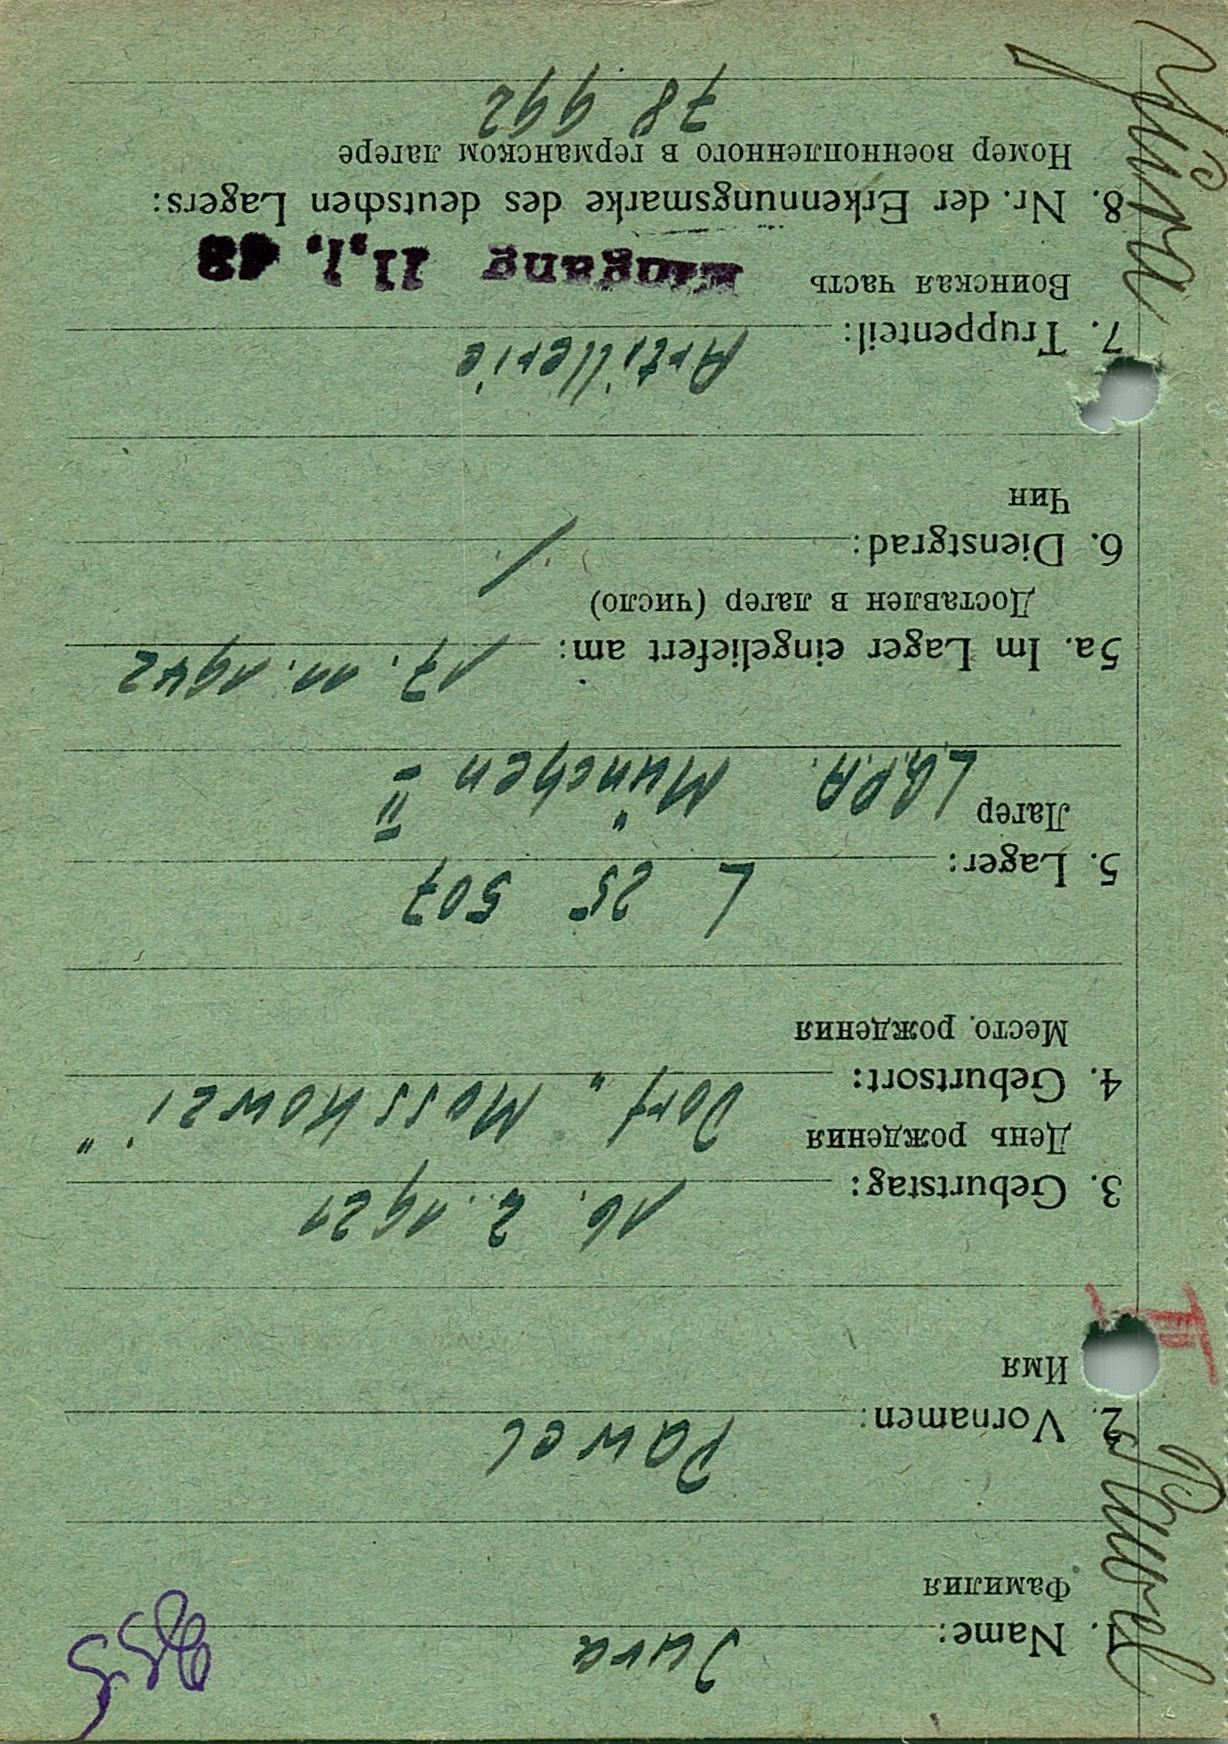 1. Name: Jura
Фамилия
2. Vornamen: Pawel
Имя
3. Geburtstag: 16. 2. 1921
День рождения
4. Geburtsort: Dorf „Mosskowzi"
Место рождения
5. Lager: L 25 507
Лагер L.G.P.A. München II
5a. Im Lager eingeliefert am: 17. 11. 1942
Доставлен в лагер (число)
6. Dienstgrad: /
Чин
7. Truppenteil: Artillerie
Воинская часть Eingang 11.1.43
8. Nr. der Erkennungsmarke des deutschen Lagers:
Номер военнопленного в германском лагере
78 992
Pawel
Jura